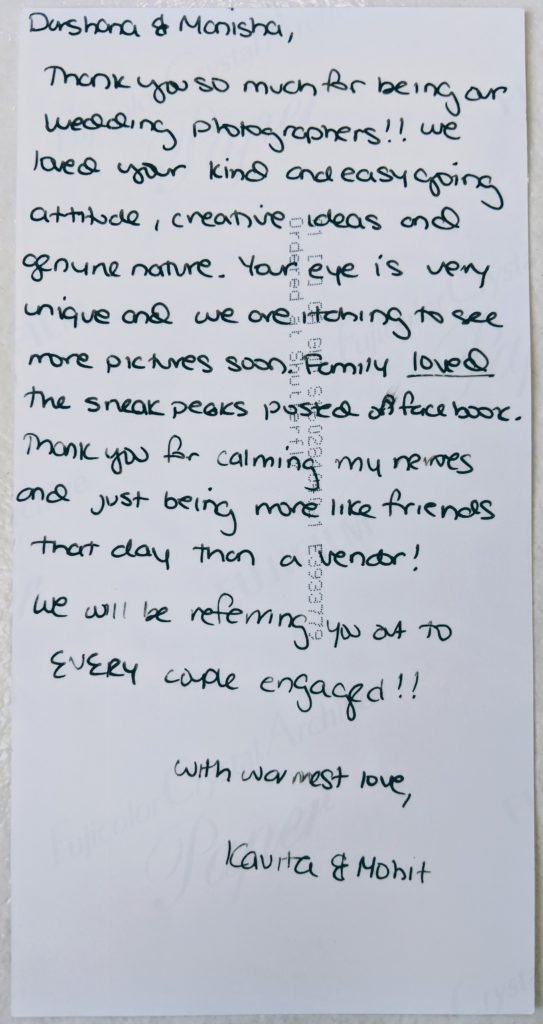 Darshana & Manisha,
Thank you so much for being our
wedding photographers!! we
loved your kind and easygoing
attitude, creative ideas and
genuine nature. Your eye is very
unique and we are itching to see
more pictures soon. Family loved
the sneak peaks posted on facebook.
Thank you for calming my nerves
and just being more like friends
that day than a vendor!
We will be referring you out to
EVERY couple engaged!!
with warmest love,
Kavita & Mohit
Fujicolor Crystal Archive
Paper